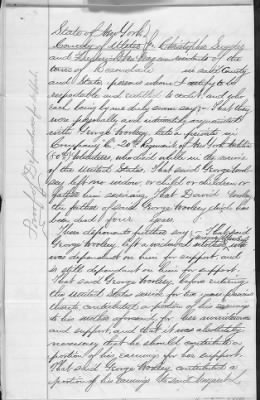 State of New York
County of Ulster ss Christopher
and Frederick
town of Rosendale in said County
and State persons whom I certify to be
respectable and entitled to credit, and who
each being by me duly sworn say; - That they
were personally and intimately acquainted
with George Wooley, late a private in
Company C. 20th Regiment of New York
(80th) Volunteers, who died while in the service
of the United States. That said George Wooley
left no widow, or child or children or
father him surviving. That Wooley
the father of said George Wooley dec'd has
been dead four years.
These deponents further say; - That said
George Wooley left a widowed mother, who
was dependent on him for support, and
is still dependent on him for support.
That said George Wooley, before entering
the United States service for two years previous
thereto contributed a portion of his earnings
to his mother aforesaid, for her maintenance
and support, and that it was absolutely
necessary that he should contribute a
portion of his earnings for her support.
That said George Wooley contributed a
portion of his earnings to said Margaret
Proof of Dependence